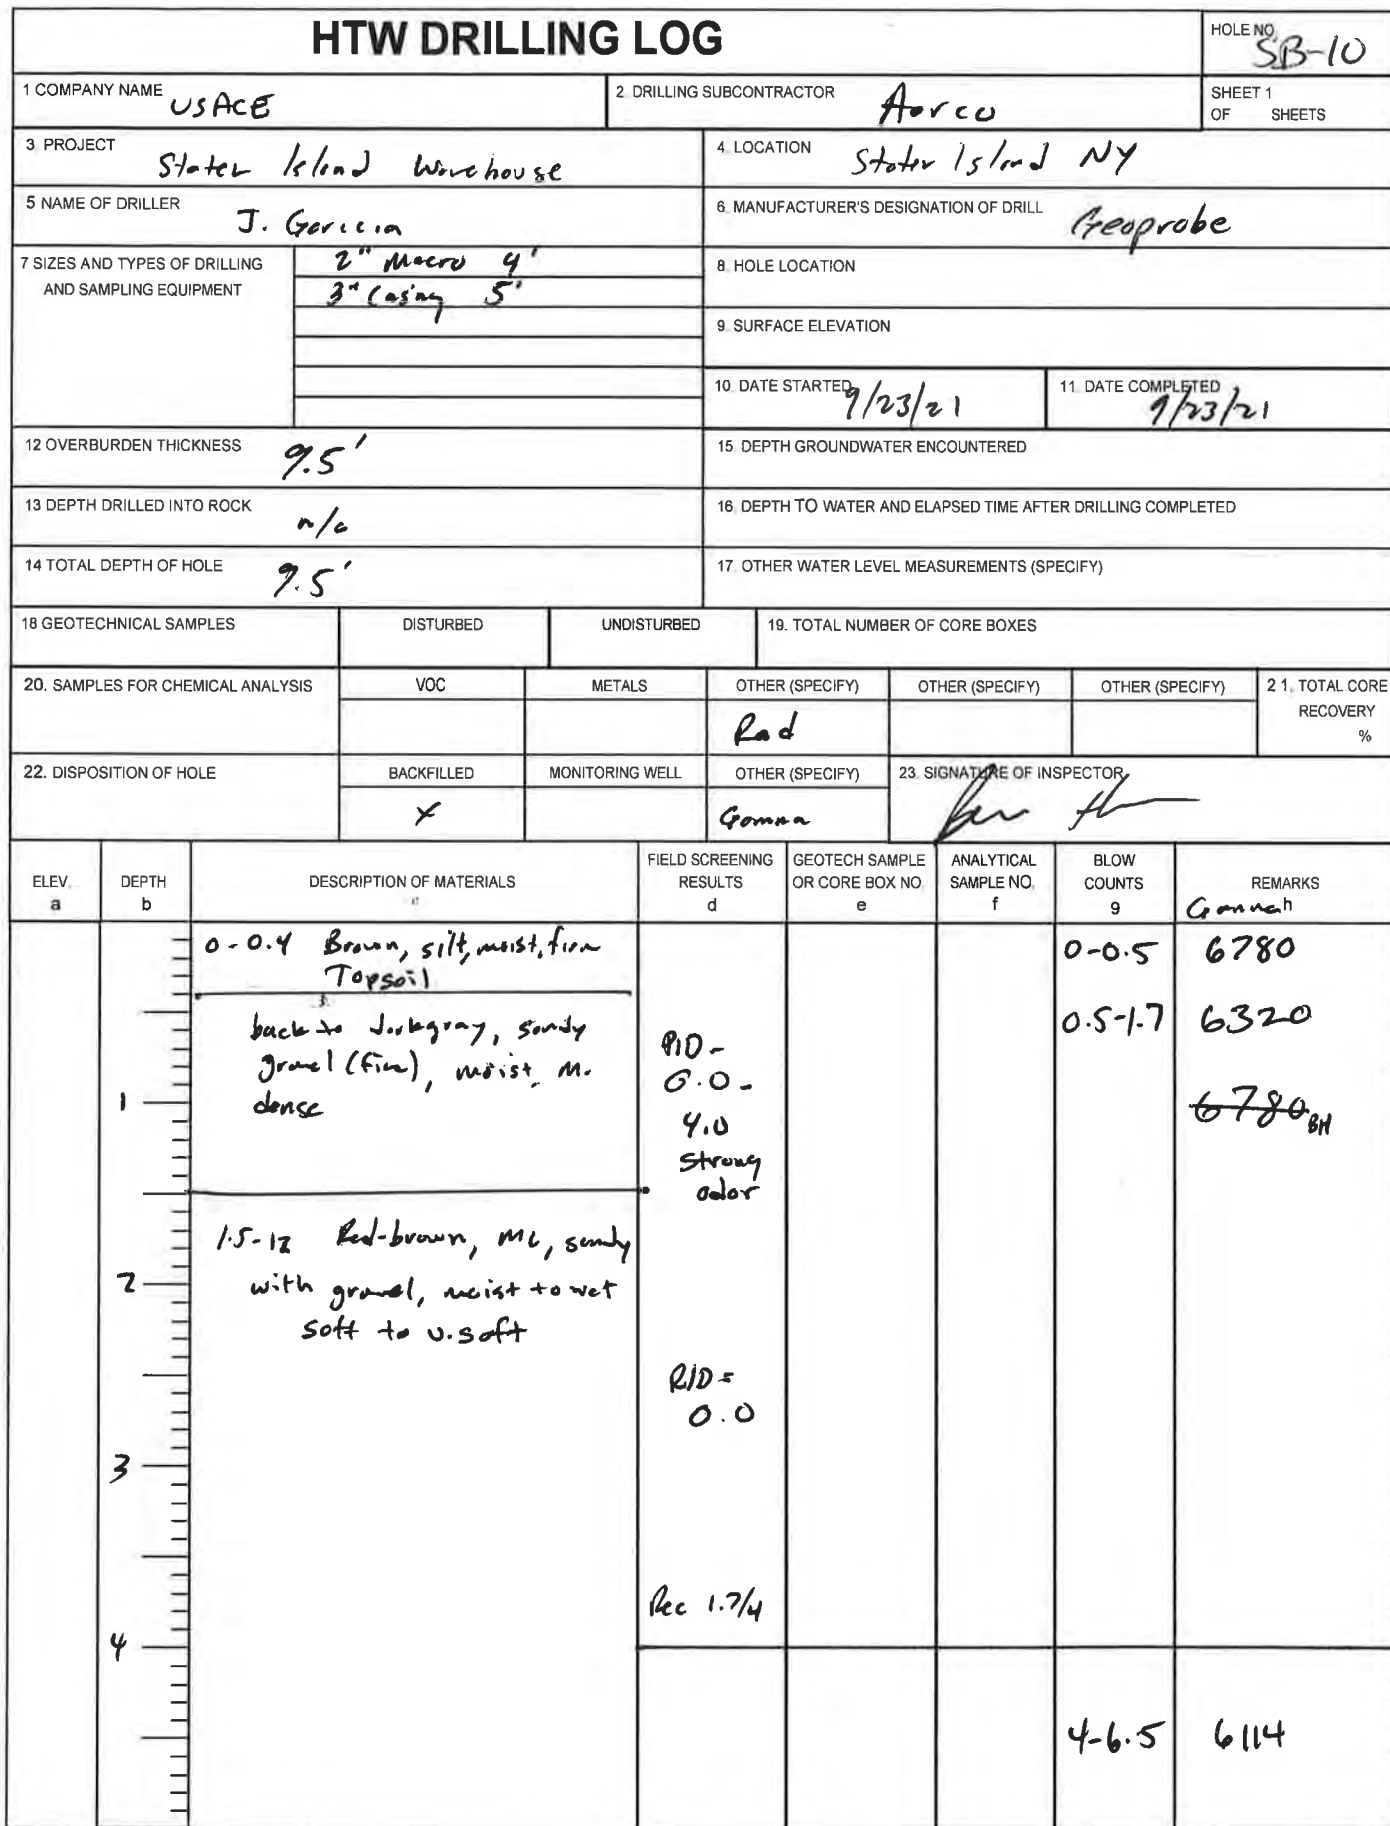 HTW DRILLING LOG
HOLE NO.
SB-10
1 COMPANY NAME
USACE
2. DRILLING SUBCONTRACTOR
Aarco
SHEET 1
OF SHEETS
3. PROJECT
Staten Island Warehouse
4. LOCATION
Staten Island NY
5 NAME OF DRILLER
J. Garccia
6. MANUFACTURER'S DESIGNATION OF DRILL
Geoprobe
7 SIZES AND TYPES OF DRILLING
AND SAMPLING EQUIPMENT
2" Macro 4'
3" Casing 5'
8. HOLE LOCATION
9. SURFACE ELEVATION
10. DATE STARTED
9/23/21
11. DATE COMPLETED
9/23/21
12 OVERBURDEN THICKNESS
9.5'
15. DEPTH GROUNDWATER ENCOUNTERED
13 DEPTH DRILLED INTO ROCK
n/a
16. DEPTH TO WATER AND ELAPSED TIME AFTER DRILLING COMPLETED
14 TOTAL DEPTH OF HOLE
9.5'
17. OTHER WATER LEVEL MEASUREMENTS (SPECIFY)
18 GEOTECHNICAL SAMPLES
DISTURBED
UNDISTURBED
19. TOTAL NUMBER OF CORE BOXES
20. SAMPLES FOR CHEMICAL ANALYSIS
VOC
METALS
OTHER (SPECIFY)
OTHER (SPECIFY)
OTHER (SPECIFY)
21. TOTAL CORE
RECOVERY
%
Rad
22. DISPOSITION OF HOLE
BACKFILLED
MONITORING WELL
OTHER (SPECIFY)
23. SIGNATURE OF INSPECTOR
X
Gamma
ELEV.
a
DEPTH
b
DESCRIPTION OF MATERIALS
c
FIELD SCREENING
RESULTS
d
GEOTECH SAMPLE
OR CORE BOX NO.
e
ANALYTICAL
SAMPLE NO.
f
BLOW
COUNTS
g
REMARKS
Gamma h
0-0.4 Brown, silt, moist, firm
Topsoil
0-0.5 6780
back to darkgray, sandy
gravel (fine), moist, M.
dense
PID -
0.0 -
4.0
strong
odor
0.5-1.7 6320
6780 BH
1
1.5-12 Red-brown, ML, sandy
with gravel, moist to wet
soft to v.soft
2
PID =
0.0
3
Rec 1.7/4
4
4-6.5 6114